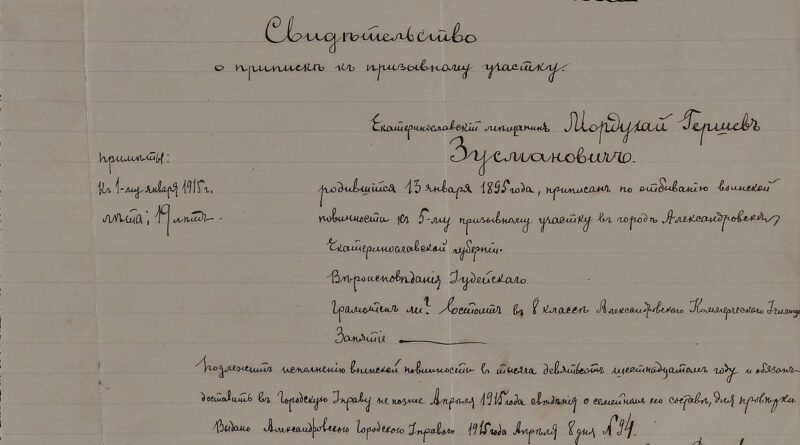 Свидѣтельство
о припискѣ къ призывному участку.
Екатеринославскій мѣщанинъ Мордухай Гершевъ
Зусмановичъ.
примѣты:
Къ 1-му января 1915 г.
лѣта: 19 лѣтъ.
родившійся 13 января 1895 года, приписанъ по отбыванію воинской
повинности къ 5-му призывному участку въ городѣ Александровскѣ
Екатеринославской губерніи.
Вѣроисповѣданія Іудейскаго
Грамотенъ ли? Состоитъ въ 8 классѣ Александровскаго Коммерческаго Училища
Занятіе
Подлежитъ исполненію воинской повинности въ тысяча девятьсотъ шестнадцатомъ году и обязанъ
доставить въ Городскую Управу не позже Апрѣля 1915 года свѣдѣнія о семейномъ его составѣ, для провѣрки
Выдано Александровскою Городскою Управою 1915 года Апрѣля 8 дня № 94.